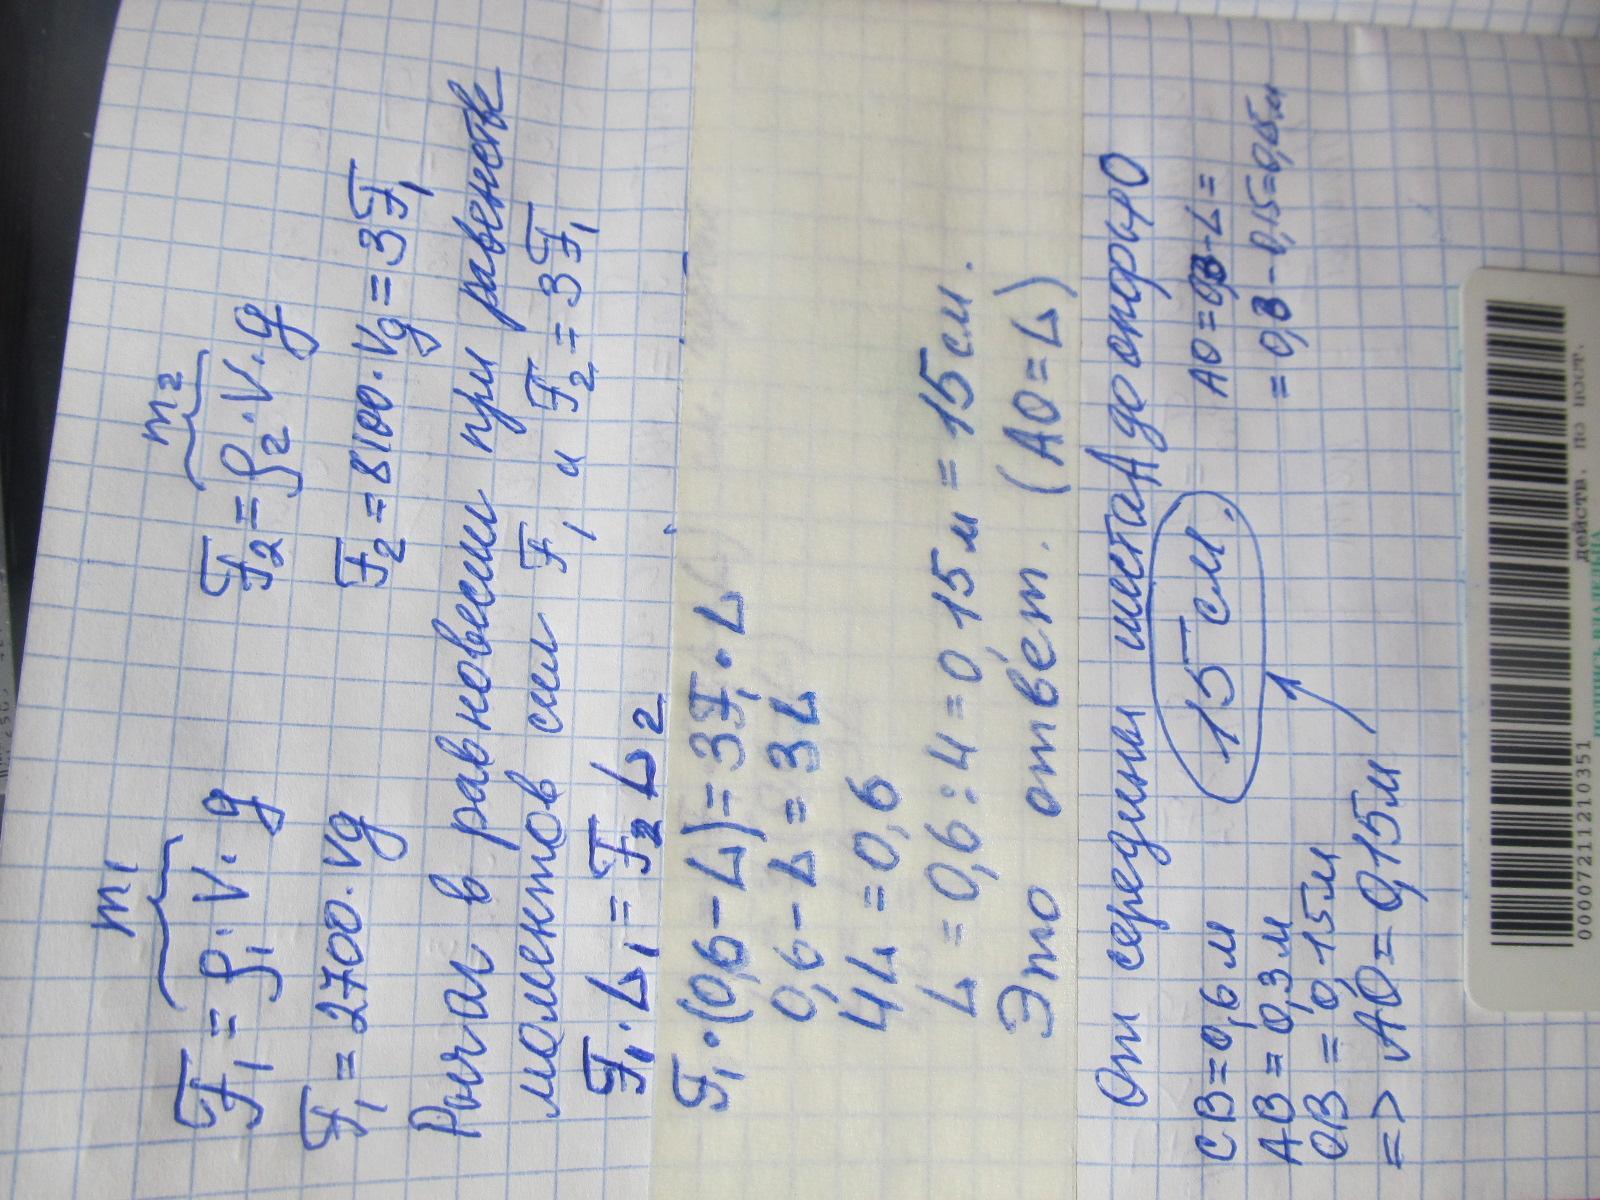 m₁
m₂
F₁ = ρ₁·V·g
F₂ = ρ₂·V·g
F₁ = 2700·Vg
F₂ = 8100·Vg = 3F₁
Рычаг в равновесии при равенстве
моментов сил F₁ и F₂ = 3F₁
F₁·L₁ = F₂L₂
F₁·(0,6-L) = 3F₁·L
0,6-L = 3L
4L = 0,6
L = 0,6:4 = 0,15м = 15см.
Это ответ. (АО=L)
От середины шеста А до опоры О
15см.
СВ=0,6м
АВ=0,3м
ОВ=0,15м
=> АО=0,15м
АО=0,3-L=
=0,3-0,15=0,15м
0000721121210351
действ. по пост.